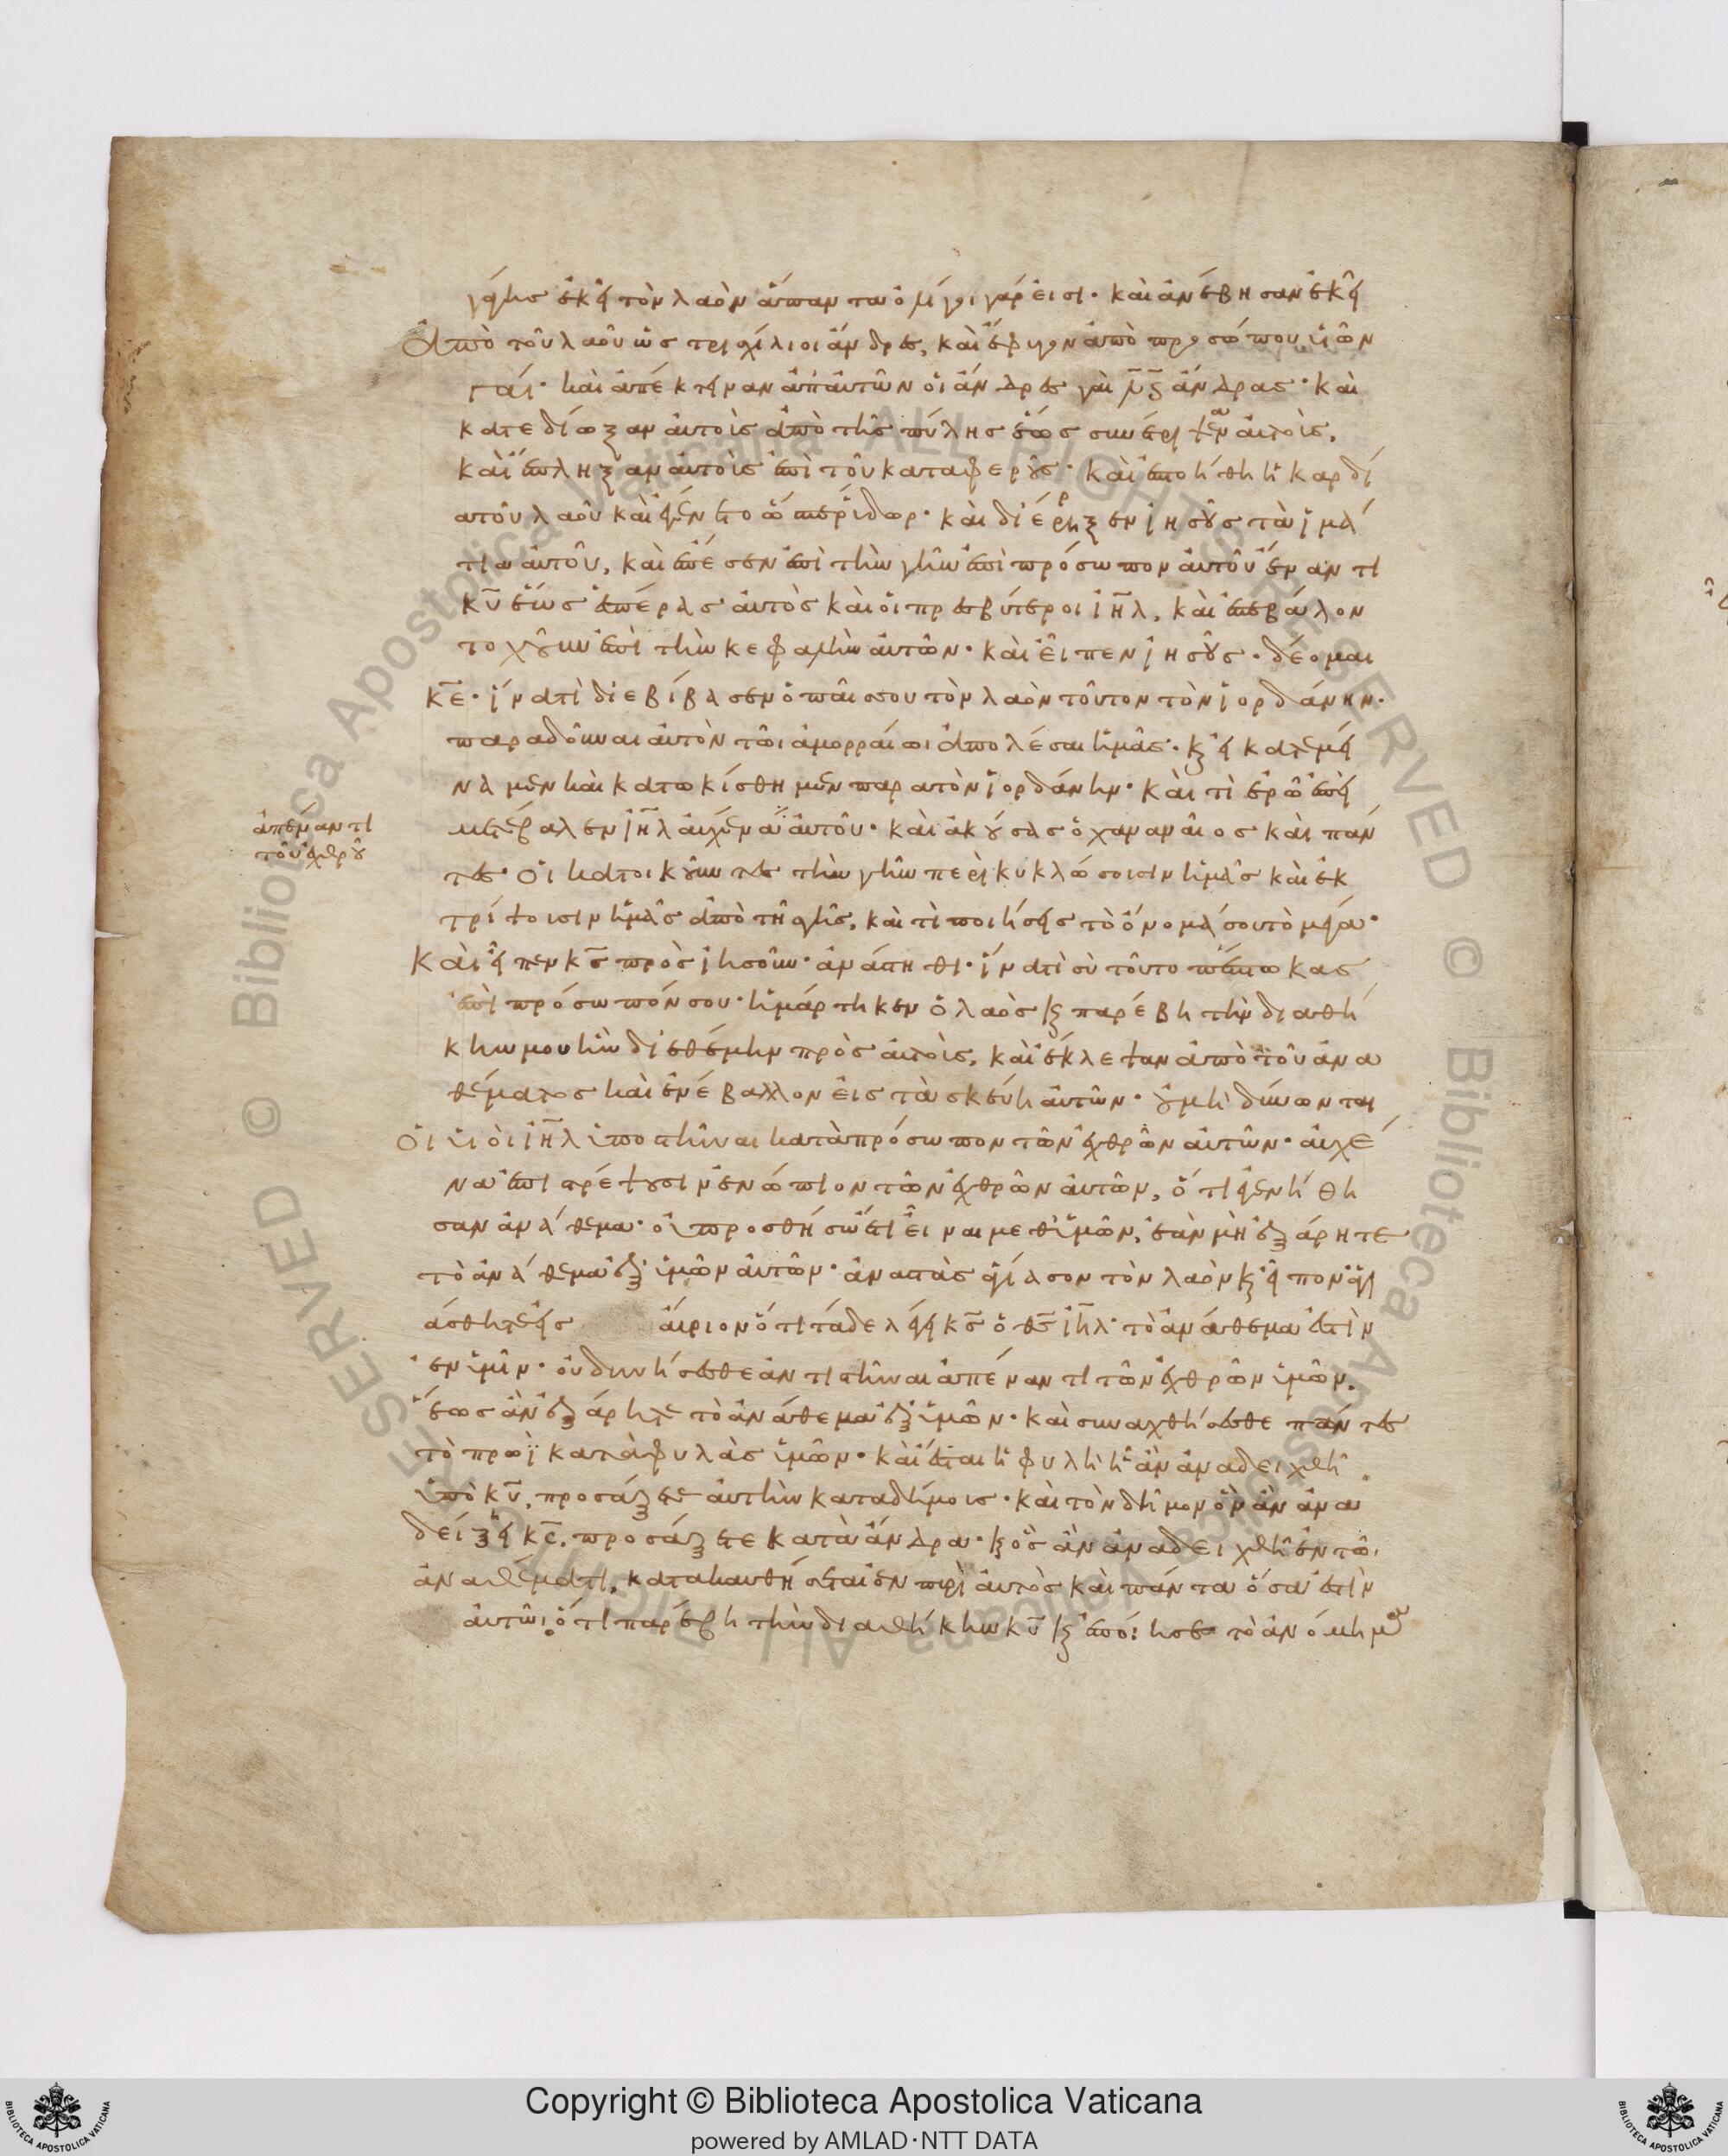 γάγης ἐκεῖ τὸν λαὸν ἅπαντα ὀλίγοι γάρ εἰσι· καὶ ἀνέβησαν ἐκεῖ
ἀπὸ τοῦ λαοῦ ὡς τρισχίλιοι ἄνδρες, καὶ ἔφυγον ἀπὸ προσώπου
γαί· καὶ ἀπέκτειναν ἀπ' αὐτῶν οἱ ἄνδρες γαὶ λ̅ς̅ ἄνδρας· καὶ
κατεδίωξαν αὐτοὺς ἀπὸ τῆς πύλης ἕως συνέτριψαν αὐτούς,
καὶ ἔπληξαν αὐτοὺς ἐπὶ τοῦ καταφεροῦς· καὶ ἐπτοήθη ἡ καρδί
α τοῦ λαοῦ καὶ ἐγένετο ὥσπερ ὕδωρ· καὶ διέρρηξεν ἰησοῦς τὰ ἱμά
τια αὐτοῦ, καὶ ἔπεσεν ἐπὶ τὴν γῆν ἐπὶ πρόσωπον αὐτοῦ ἔναντι
κ̅υ̅ ἕως ἑσπέρας αὐτὸς καὶ οἱ πρεσβύτεροι ι̅η̅λ̅, καὶ ἐπέβαλον
τὸ χοῦν ἐπὶ τὴν κεφαλὴν αὐτῶν· καὶ εἶπεν ἰησοῦς· δέομαι
κ̅ε̅· ἵνα τί διεβίβασεν ὁ παῖς σου τὸν λαὸν τοῦτον τὸν ἰορδάνην·
παραδοῦναι αὐτὸν τῶι ἀμορραίωι ἀπολέσαι ἡμᾶς· κ εἰ κατεμεί
ναμεν καὶ κατωκίσθημεν παρα τὸν ἰορδάνην· καὶ τί ἐρῶ ἐπεὶ
μετέβαλεν ι̅η̅λ̅ αὐχένα αὐτοῦ· καὶ ἀκούσας ὁ χαναναῖος καὶ πάν
τες οἱ κατοικοῦντες τὴν γῆν περικυκλώσουσιν ἡμᾶς καὶ ἐκ
τρίψουσιν ἡμᾶς ἀπὸ τῆς γῆς, καὶ τί ποιήσεις τὸ ὄνομά σου τὸ μέγα·
καὶ εἶπεν κ̅ς̅ πρὸς ἰησοῦν· ἀνάστηθι· ἵνα τί σὺ τοῦτο πέπτωκας
ἐπὶ πρόσωπόν σου· ἡμάρτηκεν ὁ λαὸς κ παρέβη τὴν διαθή
κην μου ἣν διεθέμην πρὸς αὐτούς, καὶ ἔκλεψαν ἀπὸ τοῦ ἀνα
θέματος καὶ ἐνέβαλλον εἰς τὰ σκεύη αὐτῶν· οὐ μὴ δύνωνται
οἱ υἱοὶ ι̅η̅λ̅ ὑποστῆναι κατὰ πρόσωπον τῶν ἐχθρῶν αὐτῶν· αὐχέ
να ἐπιστρέψουσιν ἐνώπιον τῶν ἐχθρῶν αὐτῶν, ὅτι ἐγενήθη
σαν ἀνάθεμα· οὐ προσθήσω ἔτι εἶναι μεθ' ὑμῶν, ἐὰν μὴ ἐξάρητε
τὸ ἀνάθεμα ἐξ ὑμῶν αὐτῶν· ἀναστὰς ἁγίασον τὸν λαὸν κ εἰπὸν ἁγι
άσθητε εἰς αὔριον ὅτι τάδε λέγει κ̅ς̅ ὁ θ̅ς̅ ι̅η̅λ̅· τὸ ἀνάθεμα ἐστὶν
ἐν ὑμῖν· οὐ δυνήσεσθε ἀντιστῆναι ἀπέναντι τῶν ἐχθρῶν ὑμῶν,
ἕως ἂν ἐξάρητε τὸ ἀνάθεμα ἐξ ὑμῶν· καὶ συναχθήσεσθε πάντες
τὸ πρωῒ κατὰ φυλὰς ὑμῶν· καὶ ἔσται ἡ φυλὴ ἣ ἂν ἀναδειχθῆ
ὑπὸ κ̅υ̅, προσάξετε αὐτὴν κατα δήμους· καὶ τὸν δῆμον ὃν ἂν ἀνα
δείξη κ̅ς̅, προσάξετε κατὰ ἄνδρα· κ ὃς ἂν ἀναδειχθῆ ἐν τῶ
ἀναθέματι, κατακαυθήσεται ἐν πυρὶ αὐτὸς καὶ πάντα ὅσα ἐστὶν
αὐτῶι, ὅτι παρέβη τὴν διαθήκην κ̅υ̅ κ ἐποίησε τὸ ἀνόμημα
ἀπέναντι
τοῦ ἐχθροῦ
Copyright © Biblioteca Apostolica Vaticana
powered by AMLAD·NTT DATA